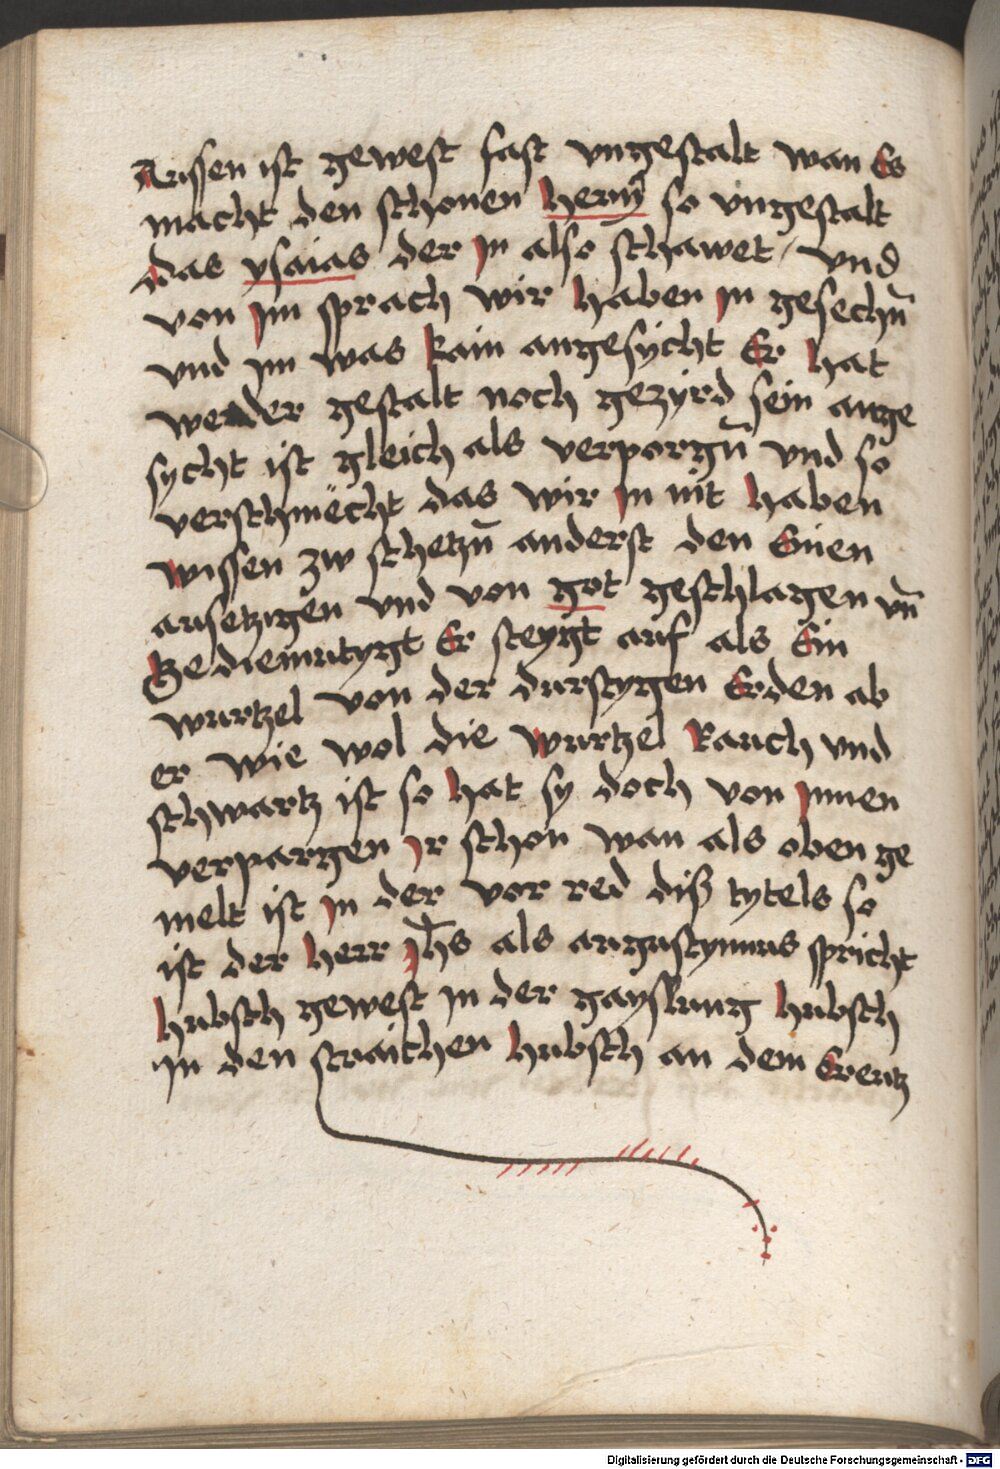 Aussen ist gewest fast vngestalt wan Es
macht den schonen hern̄ so vngestalt
das ysaias der jn also schawet / vnd
von jm sprach wir haben jn gesechn̄
vnd jm was kain angesycht Er hat
weder gestalt noch gezyrd sein ange
sycht ist gleich als verporgn̄ vnd so
verschmëcht das wir jn nit haben
wissen zw schetzn̄ anderst den Einen
ausetzigen vnd von got geschlagen vn̄
Gediemutygt Er steygt auf als Ein
wurtzel von der durstygen Erden ab
er wie wol die wurtzel Rauch vnd
schwartz ist so hat sy doch von jnnen
verpargen jr schon wan als oben ge
melt ist jn der vor red diß tytels so
ist der herr jhs als augustynus spricht
hubsch gewest jn der gayslung hubsch
jn den straichen hubsch an dem Creutz
Digitalisierung gefördert durch die Deutsche Forschungsgemeinschaft - DFG